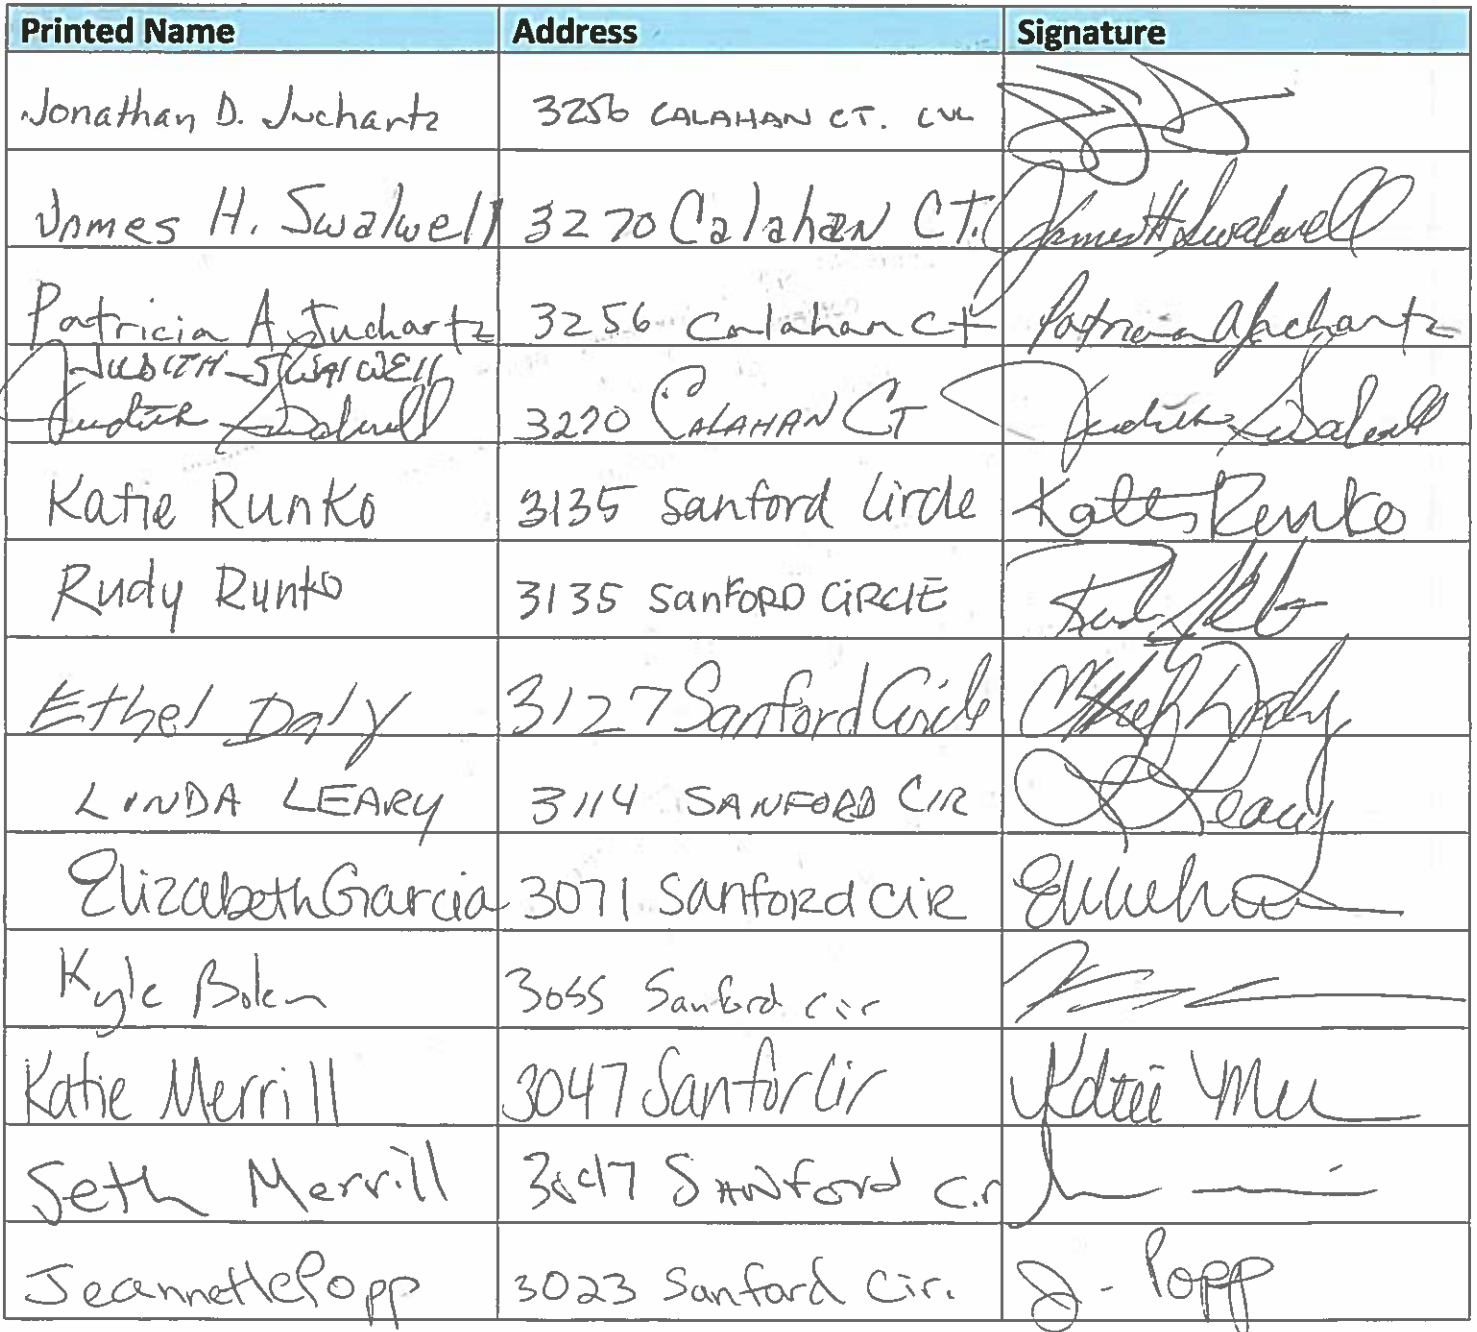 Printed Name Address Signature
Jonathan D. Juchartz 3256 CALAHAN CT. CVL
James H. Swalwell 3270 Calahan CT. James H Swalwell
Patricia A. Juchartz 3256 Calahan Ct Patricia A Juchartz
JUDITH SWALWEll
Judith Swalwell 3270 CALAHAN CT Judith Swalwell
Katie Runko 3135 Sanford Circle Katie Runko
Rudy Runko 3135 SanFORD CiRClE
Ethel Daly 3127 Sanford Circle Ethel Daly
LINDA LEARY 3114 SANFORD CIR L Leary
Elizabeth Garcia 3071 Sanford CIR
Kyle Bolen 3055 Sanford cir
Katie Merrill 3047 Sanfor Cir Katie
Seth Merrill 3047 SANford Cir
Jeannette Popp 3023 Sanford Cir. J - Popp